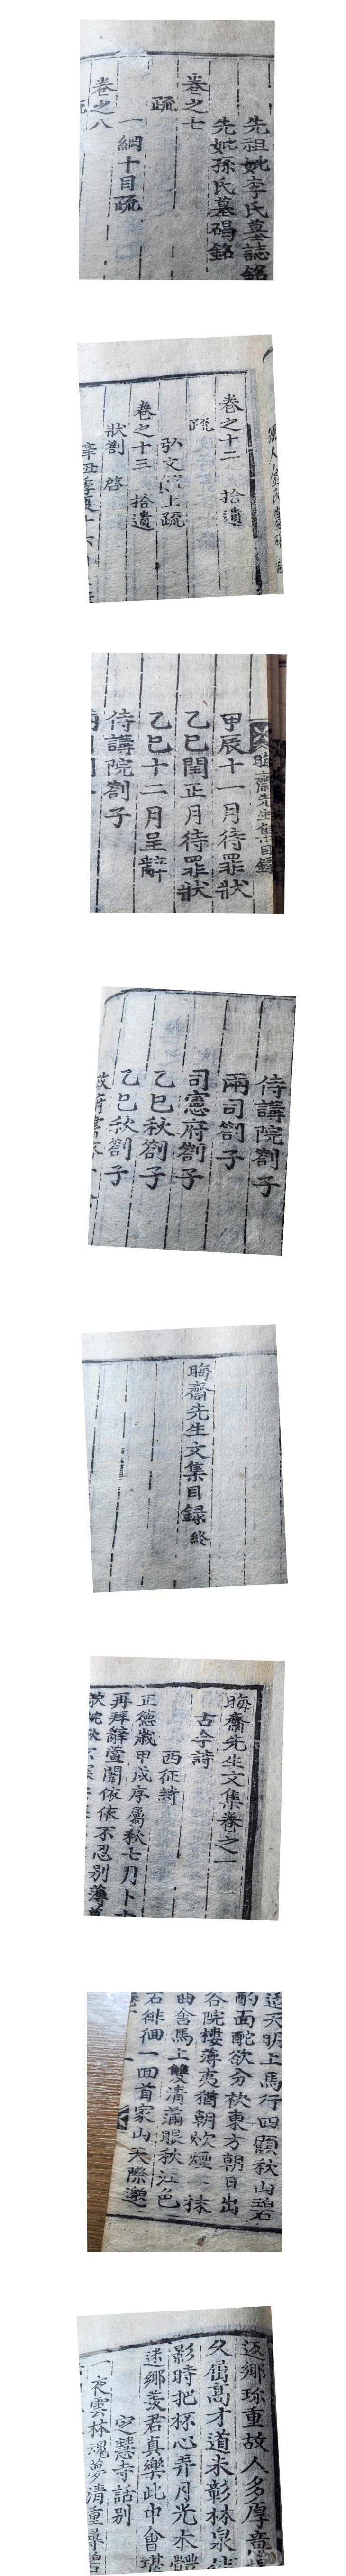 先祖妣李氏墓誌銘
先妣孫氏墓碣銘
卷之七
疏
一綱十目疏
卷之八
卷之十二 拾遺
疏
弘文館上疏
卷之十三 拾遺
狀劄 啓
晦齋先生集目錄
甲辰十一月待罪狀
乙巳閏正月待罪狀
乙巳十二月呈辭
侍講院劄子
侍講院劄子
兩司劄子
司憲府劄子
乙巳秋劄子
乙巳秋劄子
政府書
晦齋先生文集目錄 終
晦齋先生文集卷之一
古今詩
西征詩
正德歲甲戌序屬秋七月卜
再拜辭萱闈依依不忍別薄
天明上馬行四顧秋山碧
酌面酡欲分袂東方朝日出
合院樓薄夷猶朝炊煙一抹
舍馬上雙清滿眼秋江色
石徘徊一回首家山天際邈
返鄉珍重故人多厚意
久屈高才道未彰林泉
影時把杯心弄月光木
迷鄉羨君真樂此中會
定慧寺話別
一夜雲林魂夢清重尋碧